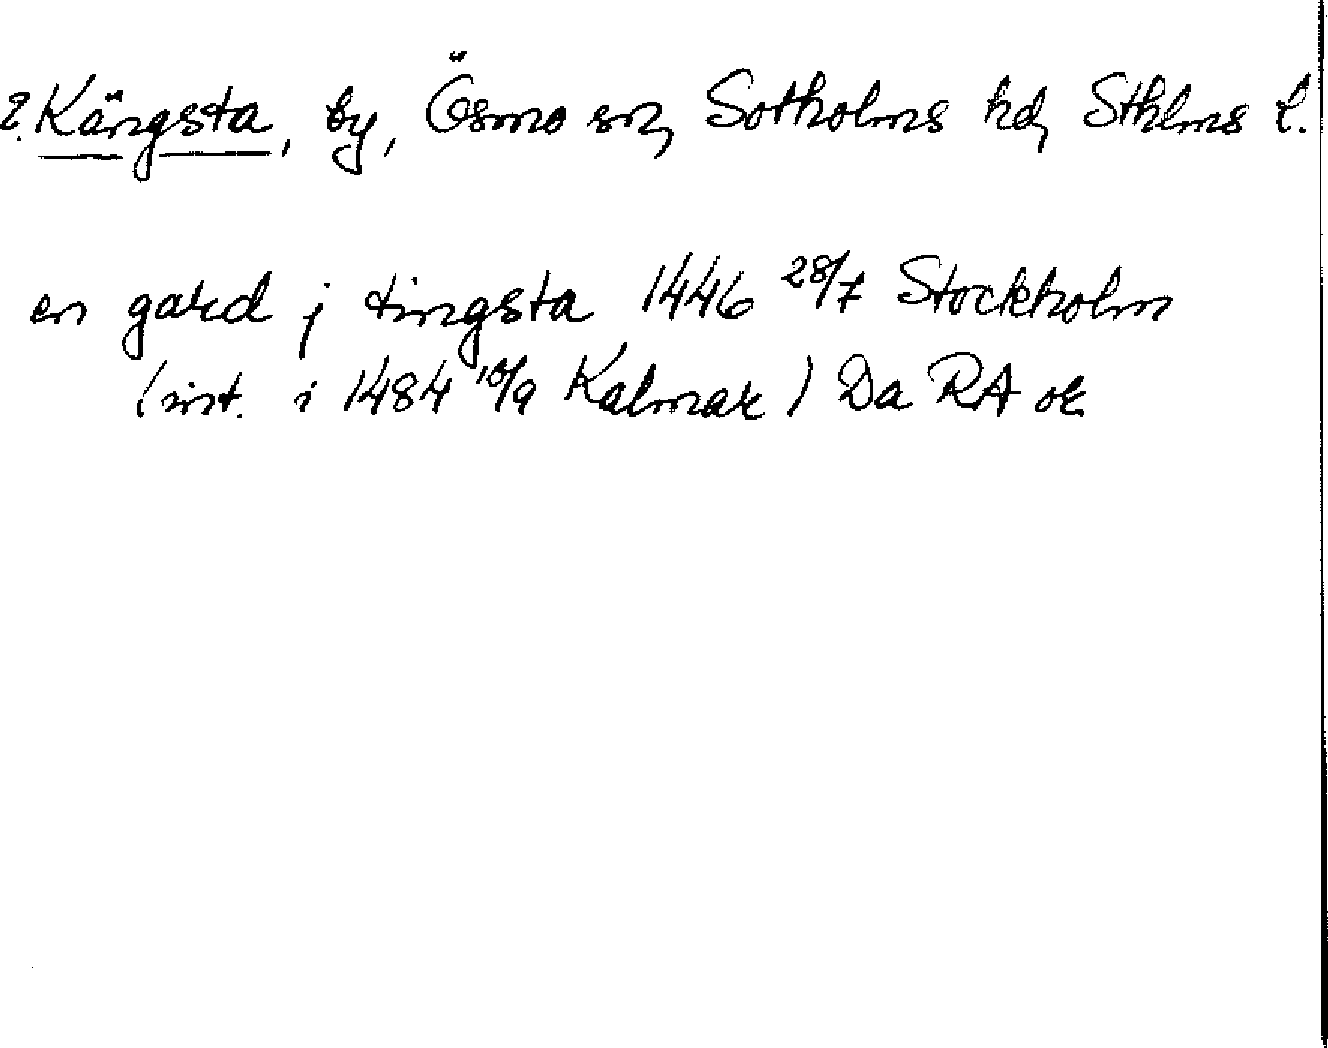 ?. Kängsta, by, Ösmo sn, Sotholms hd, Sthlms l.
en gard j tingsta 1446 28/7 Stockholm
(int. i 1484 10/9 Kalmar) Da RA or